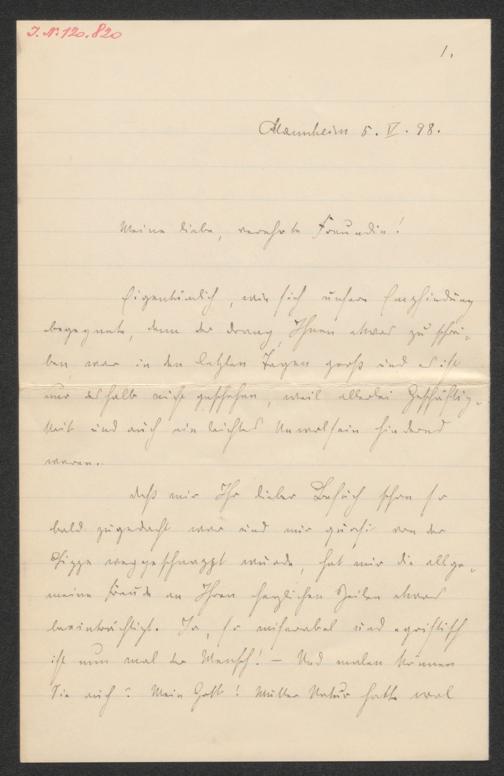 J. № 120.820
1.
Mannheim 5. IV. 98.
Meine liebe, verehrte Freundin!
Eigentümlich, wie sich unsere Empfindung
begegnete, denn der Drang, Ihnen etwas zu schrei-
ben war in den letzten Tagen groß und es ist
nur deshalb nicht geschehen, weil allerlei Geschäftig-
keit und auch ein leichtes Unwolsein hindernd
waren.
Daß mir Ihr lieber Besuch schon so
bald zugedacht war und mir quasi von der
Lippe weggeschnappt wurde, hat mir die allge-
meine Freude an Ihren herzlichen Zeilen etwas
beeinträchtigt. Ja, so miserabel und egoistisch
ist nun mal der Mensch! – Und malen können
Sie auch? Mein Gott! Mutter Natur hatte wol